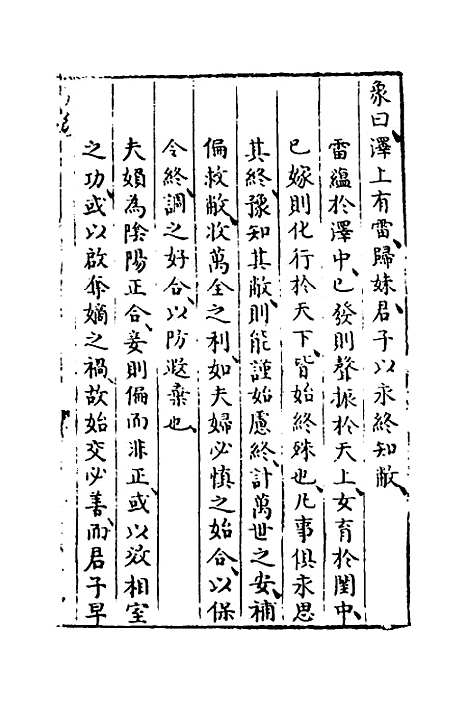 象曰澤上有雷歸妹君子以永終知敝
雷蘊於澤中已發則聲振於天上女育於閨中
已嫁則化行於天下皆始終殊也凡事俱永思
其終豫知其敝則能謹始慮終計萬世之安補
偏救敝收萬全之利如夫婦必慎之始合以保
令終調之好合以防濺棄也
夫嫡為陰陽正合妾則偏而非正或以效相室
之功或以啟奪嫡之禍故始交必善而君子早